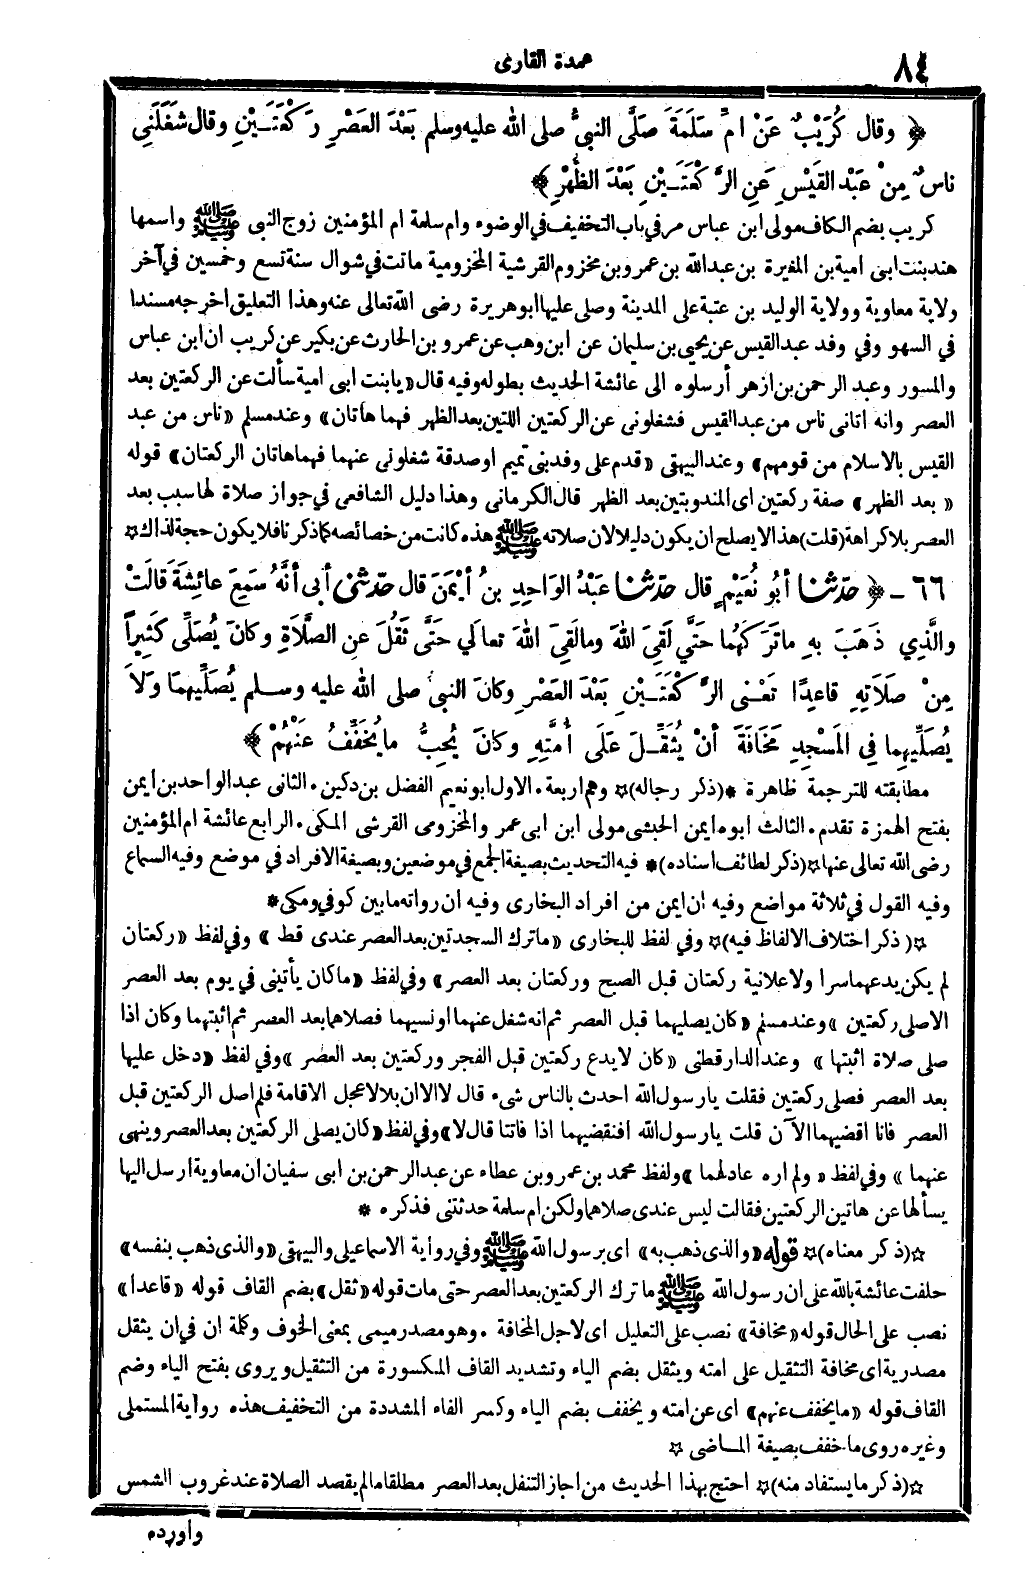 ٨٤
عمدة القارى
﴿ وقال كُرَيْبٌ عَنْ امِّ سَلَمَةَ صَلَّى النبيُّ صلى الله عليه وسلم بَعْدَ العَصْرِ رَكْعَتَـيْنِ وقال شَغَلَنِي
ناسٌ مِنْ عَبْدِ القَيْسِ عَنِ الرَّكْعَتَـيْنِ بَعْدَ الظُّهْرِ ﴾
كريب بضم الكاف مولى ابن عباس مر في باب التخفيف في الوضوء وام سلمة ام المؤمنين زوج النبى ﷺ واسمها
هند بنت ابى امية بن المغيرة بن عبدالله بن عمرو بن مخزوم القرشية المخزومية ماتت في شوال سنة تسع وخمسين في آخر
ولاية معاوية وولاية الوليد بن عتبة على المدينة وصلى عليها ابو هريرة رضى الله تعالى عنه وهذا التعليق اخرجه مسندا
في السهو وفي وفد عبد القيس عن يحيى بن سليمان عن ابن وهب عن عمرو بن الحارث عن بكير عن كريب ان ابن عباس
والمسور وعبد الرحمن بن ازهر أرسلوه الى عائشة الحديث بطوله وفيه قال «يا بنت ابى امية سألت عن الركعتين بعد
العصر وانه اتانى ناس من عبد القيس فشغلونى عن الركعتين اللتين بعد الظهر فهما هاتان» وعند مسلم «ناس من عبد
القيس بالاسلام من قومهم» وعند البيهقى «قدم على وفد بنى تميم او صدقة شغلونى عنهما فهما هاتان الركعتان» قوله
« بعد الظهر » صفة ركعتين اى المندوبتين بعد الظهر قال الكرمانى وهذا دليل الشافعى في جواز صلاة لها سبب بعد
العصر بلا كراهة (قلت) هذا لا يصلح ان يكون دليلا لان صلاته ﷺ هذه كانت من خصائصه كما ذكرنا فلا يكون حجة لذاك ☆
٦٦ ـ ﴿ حدّثنا أبُو نُعَيْمٍ قال حدّثنا عَبْدُ الوَاحِدِ بنُ أيْمَنَ قال حدّثنى أبى أنَّهُ سَمِعَ عائِشَةَ قالَتْ
والَّذِي ذَهَبَ بهِ ماتَرَكَهُما حَتَّي لَقِيَ اللهَ ومالَقِيَ اللهَ تعالَي حَتَّى ثَقُلَ عنِ الصَّلَاةِ وكانَ يُصَلِّى كَثِيراً
مِنْ صَلَاتِهِ قاعِدًا تَعْـنى الرَّكْعَتَـيْنِ بَعْدَ العَصْرِ وكانَ النبىُّ صلى الله عليه وســلم يُصَلِّيهِمَا ولَا
يُصَلِّيهِما فِي المَسْجِدِ مَخَافَةَ أنْ يُثَقِّـلَ عَلَى أُمَّتِهِ وكانَ يُحِبُّ مايُخَفِّفُ عَنْهُمْ ﴾
مطابقته للترجمة ظاهرة *(ذكر رجاله)☆ وهم اربعة . الاول ابو نعيم الفضل بن دكين . الثانى عبد الواحد بن ايمن
بفتح الهمزة تقدم . الثالث ابوه ايمن الحبشى مولى ابن ابى عمر والمخزومى القرشى المكى . الرابع عائشة ام المؤمنين
رضى الله تعالى عنها ☆(ذكر لطائف اسناده)* فيه التحديث بصيغة الجمع في موضعين وبصيغة الافراد في موضع وفيه السماع
وفيه القول في ثلاثة مواضع وفيه ان ايمن من افراد البخارى وفيه ان رواته ما بين كوفي ومكى *
☆( ذكر اختلاف الالفاظ فيه)☆ وفي لفظ للبخارى «ما ترك السجدتين بعد العصر عندى قط » وفي لفظ «ركعتان
لم يكن يدعهما سرا ولا علانية ركعتان قبل الصبح وركعتان بعد العصر» وفي لفظ «ما كان يأتينى في يوم بعد العصر
الا صلى ركعتين » وعند مسلم «كان يصليهما قبل العصر ثم انه شغل عنهما او نسيهما فصلاهما بعد العصر ثم اثبتهما وكان اذا
صلى صلاة اثبتها » وعند الدارقطنى «كان لا يدع ركعتين قبل الفجر وركعتين بعد العصر » وفي لفظ «دخل عليها
بعد العصر فصلى ركعتين فقلت يا رسول الله احدث بالناس شىء قال لا الا ان بلالا عجل الاقامة فلم اصل الركعتين قبل
العصر فانا اقضيهما الآن قلت يا رسول الله افنقضيهما اذا فاتتا قال لا» وفي لفظ «كان يصلى الركعتين بعد العصر وينهى
عنهما » وفي لفظ « ولم اره عاد لهما » ولفظ محمد بن عمرو بن عطاء عن عبد الرحمن بن ابى سفيان ان معاوية ارسل اليها
يسألها عن هاتين الركعتين فقالت ليس عندى صلاهما ولكن ام سلمة حدثتنى فذكره *
☆(ذكر معناه)☆ قوله «والذى ذهب به» اى برسول الله ﷺ وفي رواية الاسماعيلى والبيهقى «والذى ذهب بنفسه»
حلفت عائشة بالله على ان رسول الله ﷺ ما ترك الركعتين بعد العصر حتى مات قوله «ثقل» بضم القاف قوله «قاعدا»
نصب على الحال قوله «مخافة» نصب على التعليل اى لاجل المخافة . وهو مصدر ميمى بمعنى الخوف وكلمة ان في ان يثقل
مصدرية اى مخافة التثقيل على امته ويثقل بضم الياء وتشديد القاف المكسورة من التثقيل ويروى بفتح الياء وضم
القاف قوله «ما يخفف عنهم» اى عن امته ويخفف بضم الياء وكسر الفاء المشددة من التخفيف هذه رواية المستملى
وغيره روى ما خفف بصيغة المـاضى ☆
☆(ذكر ما يستفاد منه)☆ احتج بهذا الحديث من اجاز التنفل بعد العصر مطلقا ما لم يقصد الصلاة عند غروب الشمس
واورده